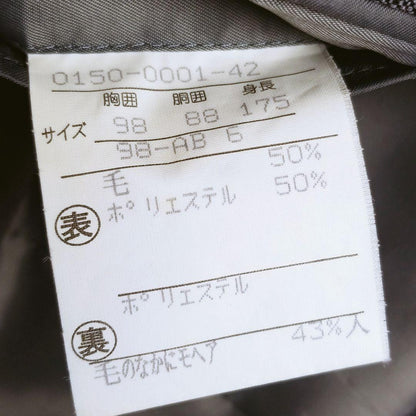 0150-0001-42
胸囲 胴囲 身長
サイズ 98 88 175
98-AB 6
毛 50%
表 ポリエステル 50%
ポリエステル
裏
毛のなかにモヘア 43%入